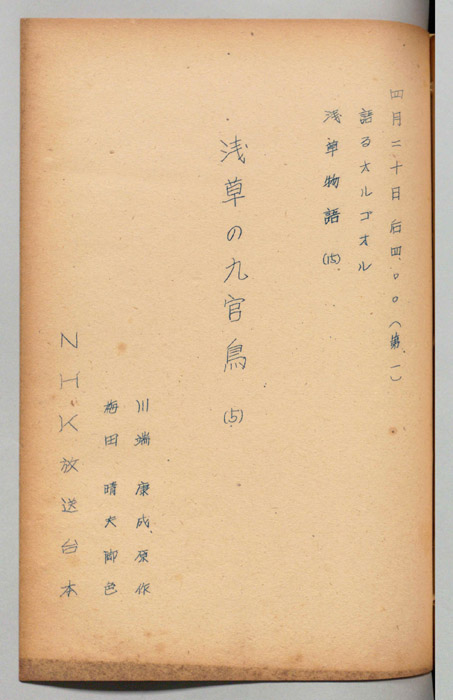 四月二十日后四.〇〇(第一)
語るオルゴオル
浅草物語(15)
浅草の九官鳥(5)
川端康成原作
梅田晴夫脚色
NHK放送台本